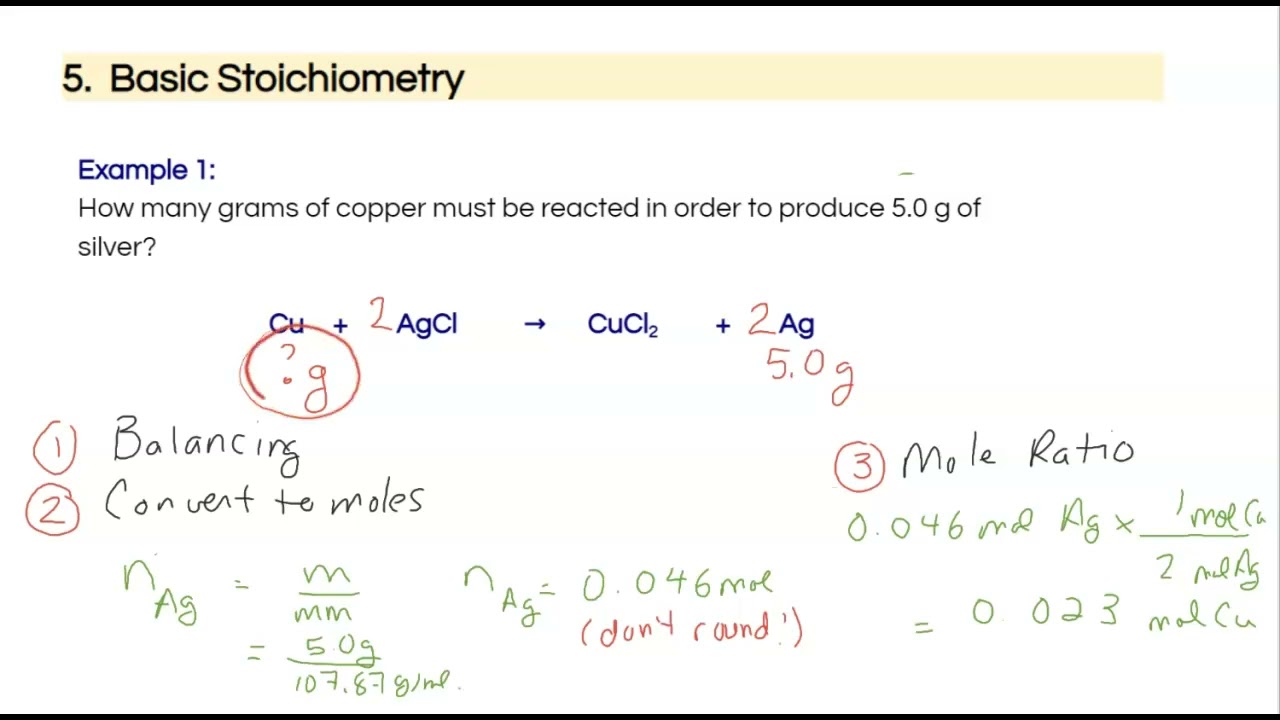 5. Basic Stoichiometry
Example 1:
How many grams of copper must be reacted in order to produce 5.0 g of
silver?
Cu + 2 AgCl → CuCl₂ + 2 Ag
? g
5.0 g
① Balancing
② Convert to moles
n_Ag = m/mm
= 5.0g/107.87 g/mol.
n_Ag = 0.046 mol
(don't round!)
③ Mole Ratio
0.046 mol Ag × 1 mol Cu/2 mol Ag
= 0.023 mol Cu